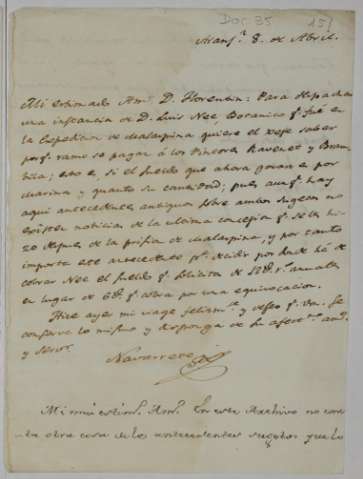 Doc 35
151
Aranj.z 8. de Abril.
Mi estimado Am.o D. Florentin: Para despachar
una instancia de D. Luis Nee, Botanico q.e fué en
la Expedicion de Malaspina quiere el xefe saber
por q.e ramo se pagan á los Pintores Ravenet y Bram
bila; esto es, si el sueldo que ahora gozan es por
Marina y quanto su cantidad; pues aunq.e hay
aqui antecedentes antiguos sobre ambos sugetos no
existen noticias de la ultima concesion q.e se les hi-
zo despues de la prision de Malaspina, y por tanto
importa este antecedente p.a decidir por donde há de
cobrar Nee el sueldo q.e solicita de r.s annales
en lugar de q.e cobra por una equivocacion.
Hice ayer mi viage felizm.te y deseo q.e Vm. se
conserve lo mismo y disponga de su afect.mo am.o
y serv.r
Navarrete
Mi mui estim.o Am.o En este Archivo no cons-
ta otra cosa de los antecedentes sugetos que lo